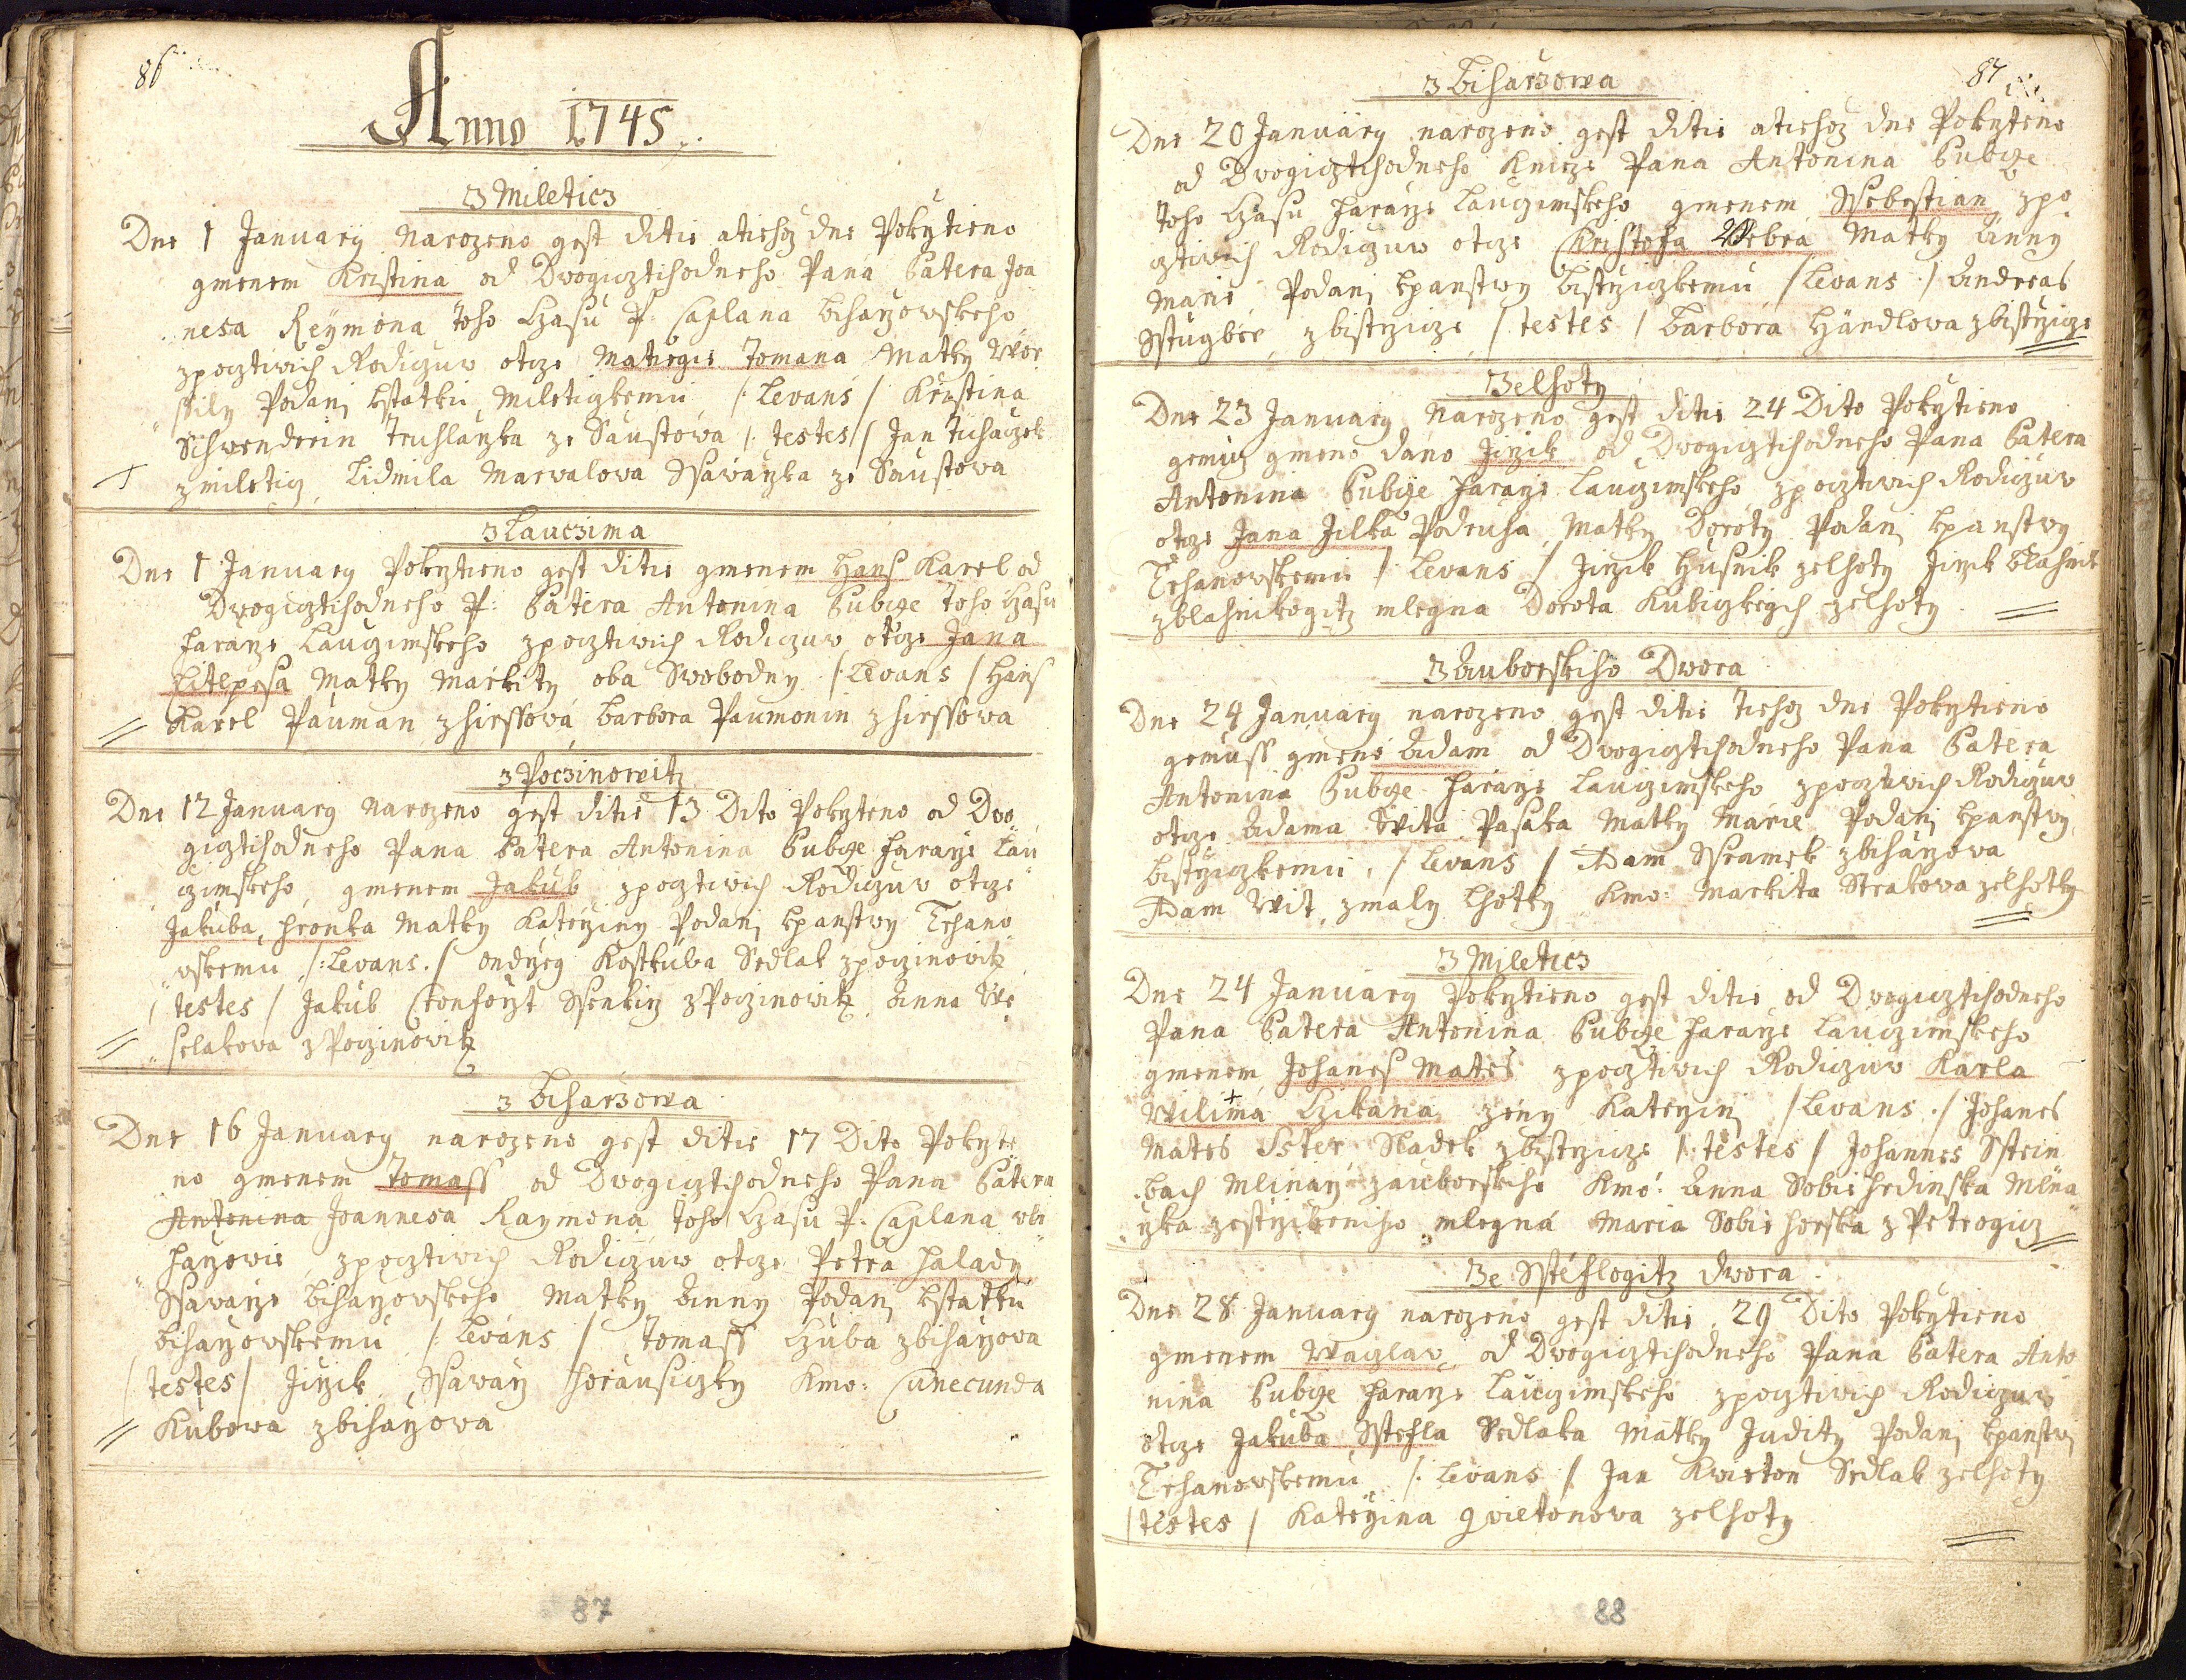 86
Anno 1745
z Mileticz
Dne 1 January Narozeno gest ditie atiehoz dne Pokrztieno
gmenem Kristina od Dwogicztihodneho Pana Patera Joa
nesa Reÿmona toho Czasu P: Caplana Biharzowskeho
zpocztiwich Rodiczuw otcze Matiegie Tomana Matky Wor
ssily Podanj kstatku Mileticzkemu /: Levans / Kristina
Schwenderin Truhlarzka ze Saustowa /: testes / Jan Tuhaczek
zmileticz, Lidmila Marwalowa Ssafarzka ze Saustowa
z Lauczima
Dne 1 January Pokrztieno gest ditie gmenem Hans Karel od
Dwogicztihodneho P: Patera Antonina Bubge toho Czasu
Fararze Lauczimskeho zpocztiwich Rodiczuw otcze Jana
Matky Markity oba Swobodny /: Levans / Hans
Karel Pauman zhirssowa, Barbora Paumonin zhirssowa
z Poczinowitz
Dne 12 January Narozeno gest ditie 13 Dito Pokrzteno od Dwo
gicztihodneho Pana Patera Antonina Bubge Fararze Lau
czimskeho, gmenem Jakub zpocztiwich Rodiczuw otcze
Jakuba, hronka Matky Katerziny Podanj kpanstwy Tehano
wskemu /: Levans. / ondrzeg Kostkuba Sedlak zpoczinowitz
/ testes / Jakub Cronforzt Ssenkirz z Poczinowitz Anna We
selakowa z Poczinowitz
z Biharzowa
Dne 16 January narozeno gest ditie 17 Dito Pokrzte
no gmenem Tomass od Dwogicztihodneho Pana Patera
Antonina Joannesa Raymona toho Czasu P: Caplana wbi
harzowie, zpocztiwich Rodiczuw otcze Petra halady
Ssafarze Biharzowskeho Matky Anny Podanj kstatku
Biharzowskemu /: Levans / Tomass Czuba zbiharzowa
/ testes / Jirzik Ssafarz horausiczky Kmo: Cunecunda
Kubowa zbiharzowa
87
87
z Biharzowa
Dne 20 January narozeno gest ditie atiehoz dne Pokrzteno
od Dwogicztihodneho Knieze Pana Antonina Bubge
toho Czasu Fararze Lauczimskeho gmenem Ssebestian zpo
cztiwich Rodiczuw otcze Kristofa Webra Matky Anny
Marie Podanj kpanstwy Bistrziczkemu / Levans / Andreas
zbistrzicze, / testes / Barbora Händlowa zbistrzicze
Z elhoty
Dne 23 January Narozeno gest ditie 24 Dito Pokrztieno
gemuz gmeno dano Jirzik od Dwogicztihodneho Pana Patera
Antonina Bubge Fararze Lauczimskeho zpocztiwich Rodiczuw
otcze Jana Jilka Podruha, Matky Doroty Podanj kpanstwy
Tehanowskemu / Levans / Jirzik Husnik zelhoty Jirzik Blahnik
zblahnikogitz mlegna Dorota Kubiczkegch zelhoty
z Auborskiho Dwora
Dne 24 January narozeno gest ditie tiehoz dne Pokrztieno
gemuss gmeno Adam od Dwogicztihodneho Pana Patera
Antonina Bubge Fararze Lauczimskeho zpocztiwich Rodiczuw
otcze Adama Wita Pasaka Matky Marie Podanj kpanstwy
bistrziczkemu, / Levans / Adam Ssramek zbiharzowa
Adam Wit zmaly Lhotky Kmo: Markita Strakowa zelhotky
z Mileticz
Dne 24 January Pokrztieno gest ditie od Dwogicztihodneho
Pana Patera Antonina Bubge Fararze Lauczimskeho
gmenem Johanes Mates zpocztiwich Rodiczuw Karla
Wilima Czikana zeny Katerzinj / Levans / Johanes
Mates Ister Sladek zbistrzicze /: testes / Johannes Sstein
bach Mlinarz zauborskiho Kmo: Anna Sobie hrdinska Mlina
rzka mlegna Maria Sobie horska z Petrogicz
Ze Sstéflogitz dwora
Dne 28 January narozeno gest ditie, 29 Dito Pokrztieno
gmenem Waczlaw od Dwogicztihodneho Pana Patera Anto
nina Bubge Fararze Lauczimskeho zpocztiwich Rodiczuw
otcze Jakuba Sstefla Sedlaka Matky Judity Podanj kpanstwj
Tehanowskemu /: Levans / Jan Kwieton Sedlak zelhoty
/ testes / Katerzina qwietonowa zelhoty
88